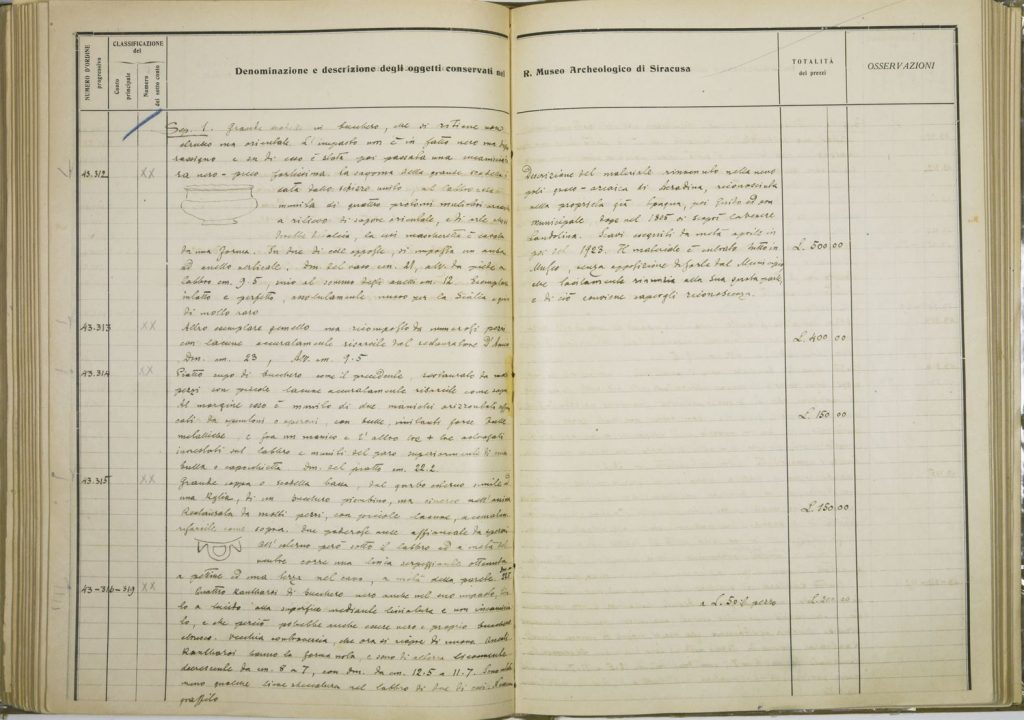 NUMERO D'ORDINE
progressivo
CLASSIFICAZIONE
del
Conto
principale
Numero
del sotto conto
Denominazione e descrizione degli oggetti conservati nel
R. Museo Archeologico di Siracusa
TOTALITÀ
dei prezzi
OSSERVAZIONI
Sep. 1. Grande in bucchero, che si ritiene non
etrusco ma orientale. L'impasto non è in fatto nero ma
e su di esso è stata poi passata una
43.312
XX
ra nero-piceo fortissima. La sagoma della grande scodella è
data dallo schizzo unito, al labbro essa è
munita di quattro protomi muliebri
a rilievo di sapore orientale, e di arte
la cui mascheretta è cavata
da una forma. In due di esse opposte, si imposta un ansa
ad anello verticale. Dm. del vaso cm. 21, alt. da piede a
labbro cm. 9.5, sino al sommo degli anelli cm. 12. Esemplare
intatto e perfetto, assolutamente nuovo per la Sicilia e
di molto raro
43.313
XX
Altro esemplare gemello ma ricomposto da numerosi pezzi
con lacune accuratamente risarcite dal restauratore D'Amico
Dm. cm. 23, Alt. cm. 9.5
43.314
XX
Piatto cupo di bucchero come il precedente, restaurato da
pezzi con piccole lacune accuratamente risarcite come sopra
Al margine esso è munito di due manichi orizzontali
da o speroni, con bulle, imitanti forse bulle
metalliche, e fra un manico e l'altro
sul labbro e muniti del paro superiormente di una
bulla o capocchietta. Dm. del piatto cm. 22.2
43.315
XX
Grande coppa o scodella bassa, dal garbo esterno simile ad
una Kylix, di un bucchero piombino, ma cinereo nell'anima
Restaurata da molti pezzi, con piccole lacune, accuratam.
risarcite come sopra. Due poderose anse affiancate da speroni
All'esterno però sotto il labbro ed a metà del
ventre corre una linea serpeggiante ottenuta
a pettine ed una terza nel cavo, a metà della parete.
43-316-319
XX
Quattro Kantharoi di bucchero nero anche nel suo impasto,
lo a lucido alla superficie mediante lisciatura e non
to, e che perciò potrebbe anche essere vero e proprio bucchero
etrusco. Vecchia controversia, che ora si riapre di nuovo.
Kantharoi hanno la forma nota, e sono di altezza
decrescente da cm. 8 a 7, con dm. da cm. 12.5 a 11.7. Sono
meno qualche lieve sbeccatura nel labbro di due di essi. Nessun
graffito
Descrizione del materiale rinvenuto nella necro
poli greco-arcaica di
nella proprietà già Spagna, poi Guido ed ora
municipale, dope nel 1925 si scoprì
Landolina. Scavi eseguiti da metà aprile in
poi del 1923. Il materiale è entrato tutto in
Museo, senza opposizione di sorta dal Municipio
che tacitamente rinunzia alla sua quota parte,
e di ciò conviene sapergli riconoscenza.
L. 500.00
L. 400.00
L. 150.00
L. 150.00
a L. 50 il pezzo
L. 200.00